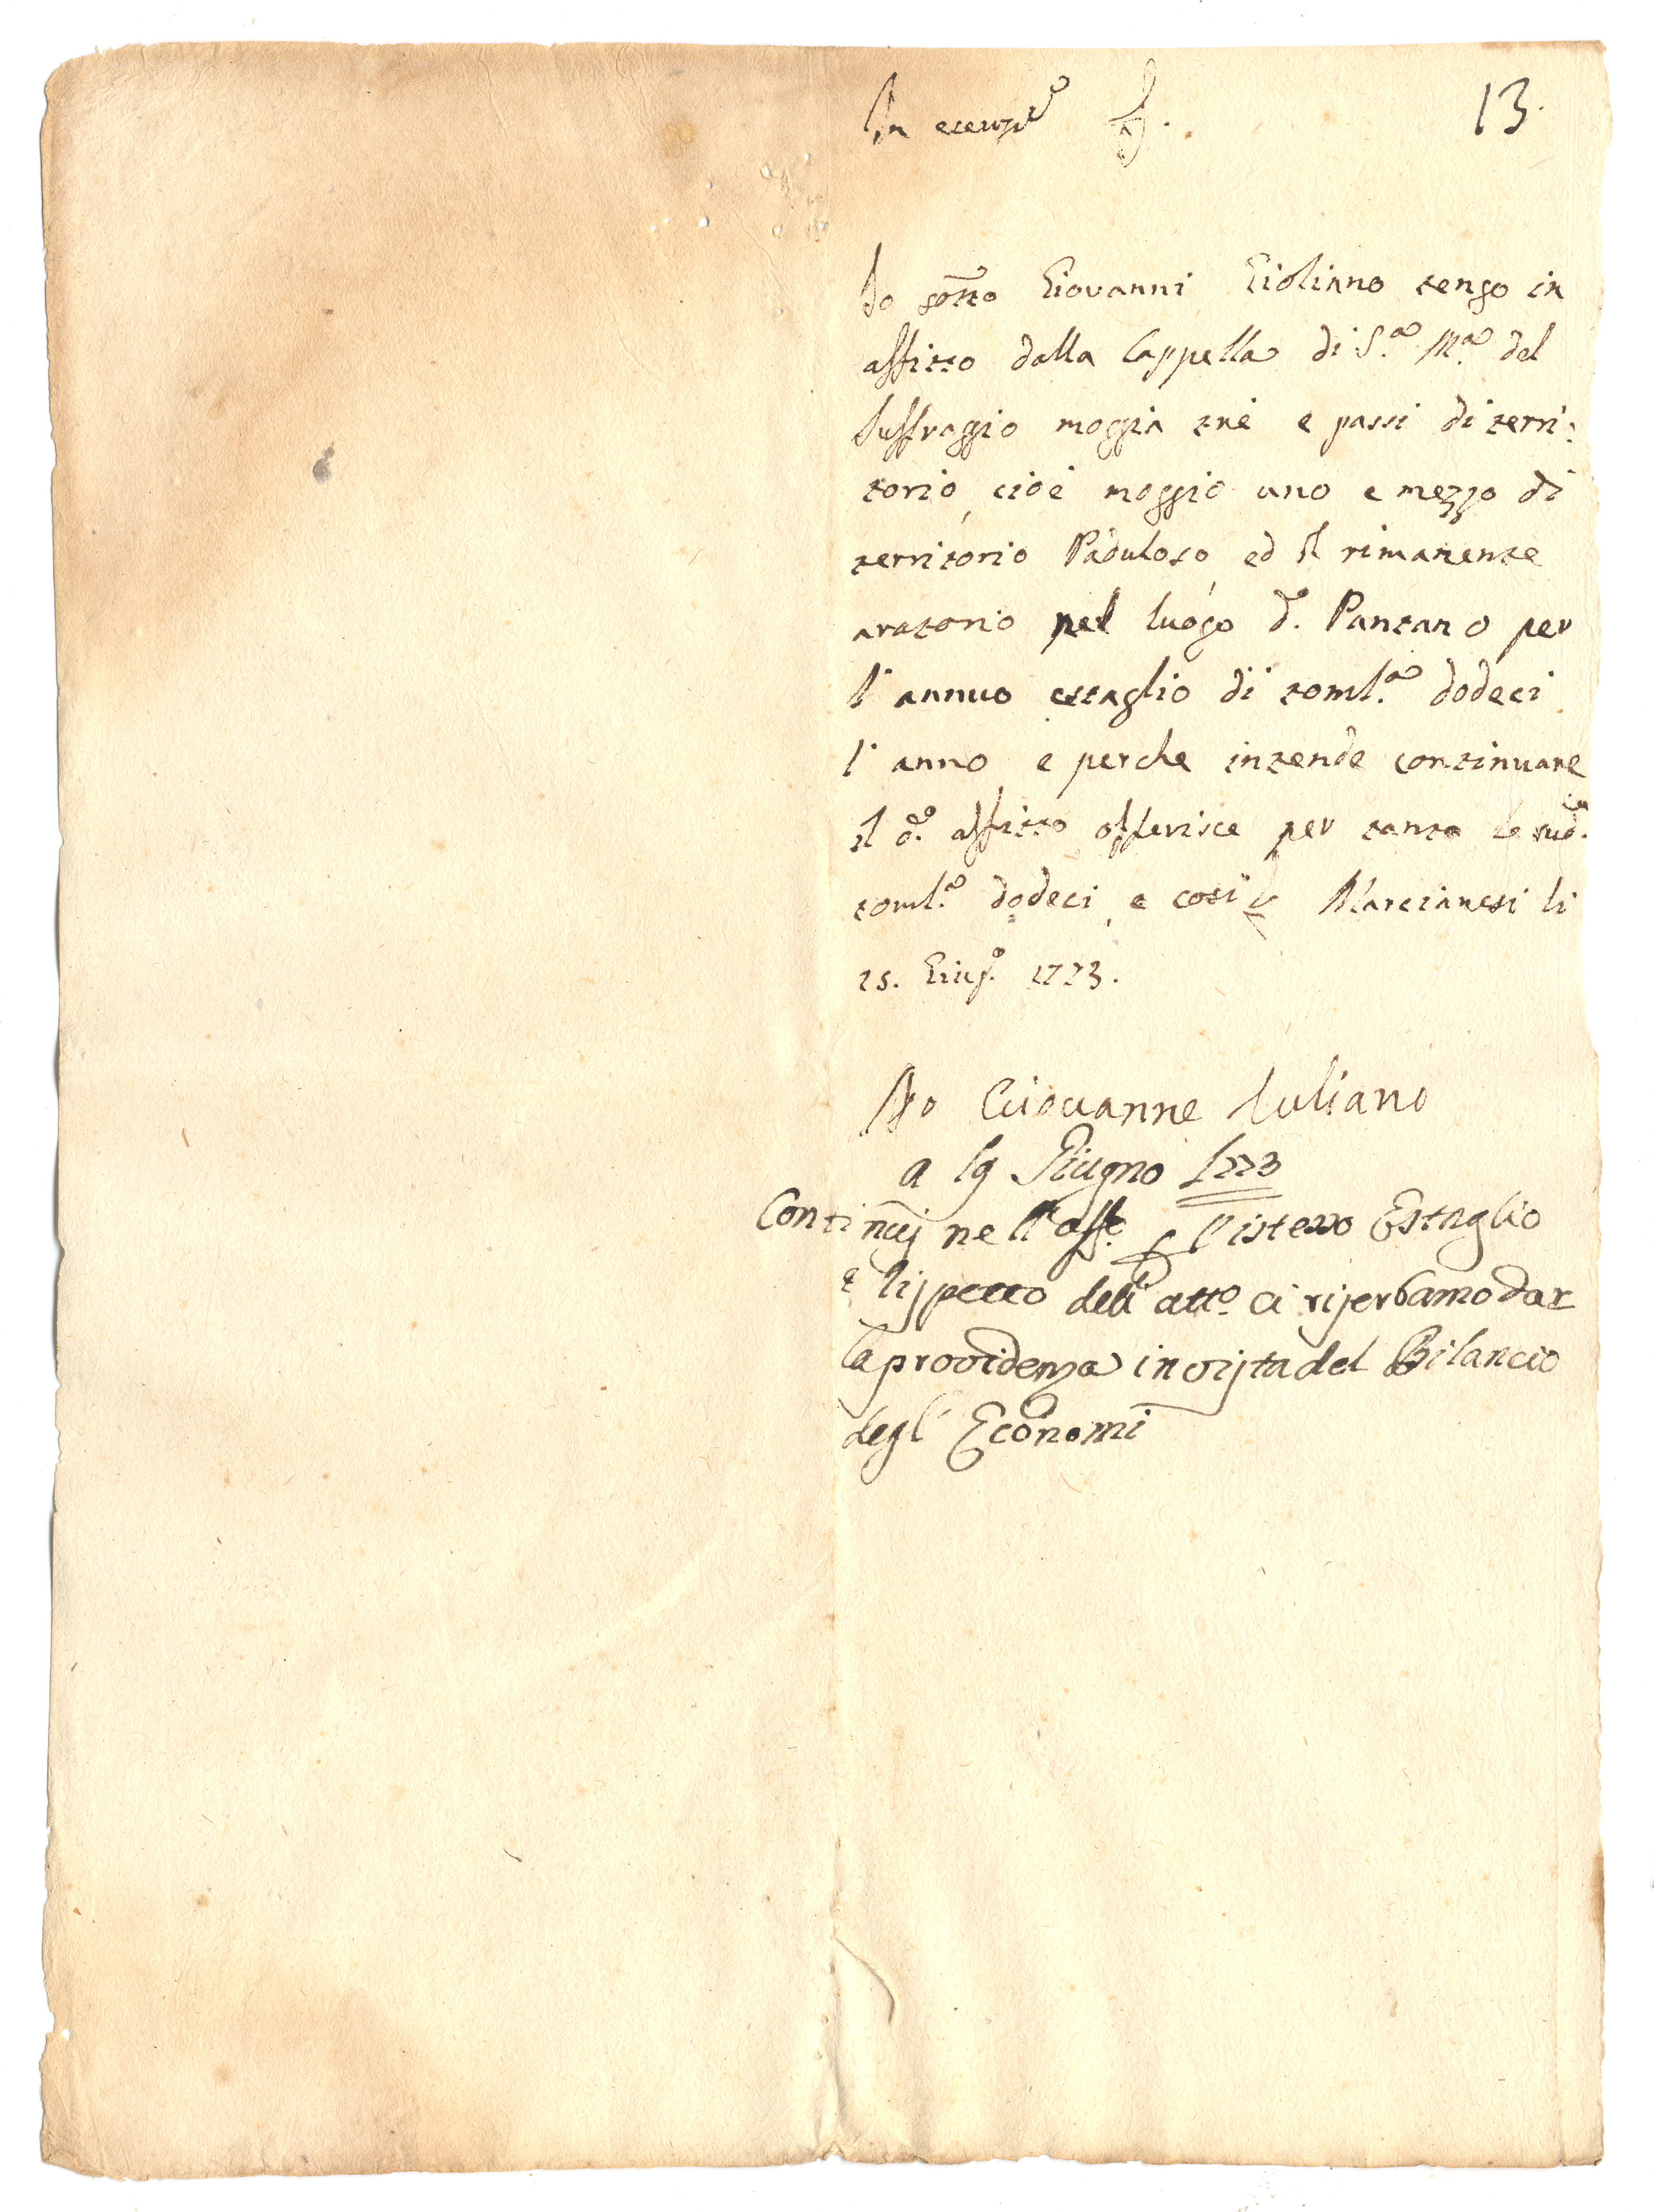 In ecenz.e 13.
Io sotto Giovanni Gioliano tengo in
affitto dalla Cappella di S.a M.a del
Suffragio moggia tre e passi di terri:
torio, cioè moggio uno e mezzo di
territorio Paduloso, ed il rimanente
aratorio nel luogo d.o Pantano per
l'annuo estaglio di toml.a dodeci
l'anno e perche intende continuare
il d.o affitto offerisce per tanto le sud.e
toml.a dodeci, e cosi Marcianesi li
15. Giug.o 1773.
Io Giovanne Iuliano
a 19 Giugno 1773
Continui nell'aff.o p l'istesso Estaglio
e rispetto dell' att.o ci riserbamo dar
la providenza in vista del Bilancio
degl' Economi